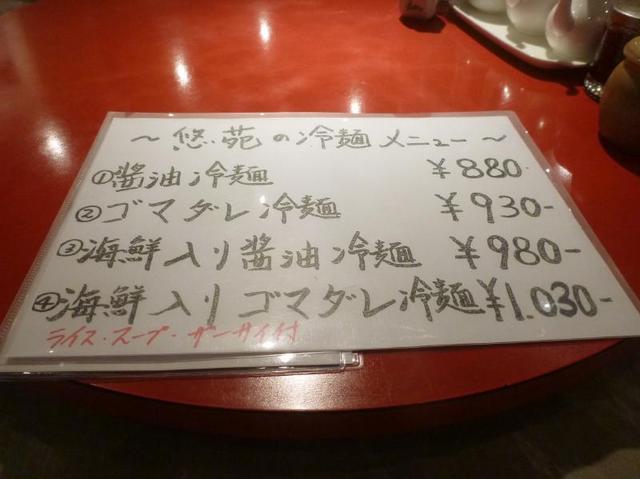 ～悠苑の冷麺メニュー～
①醤油冷麺 ¥880
②ゴマダレ冷麺 ¥930-
③海鮮入り醤油冷麺 ¥980-
④海鮮入りゴマダレ冷麺 ¥1.030-
ライス・スープ・ザーサイ付